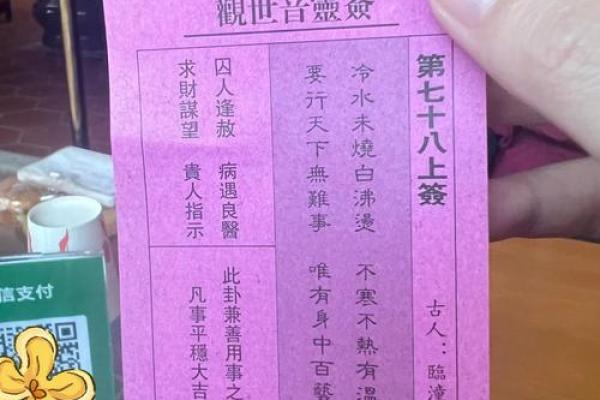 觀世音靈簽
第七十八上簽
古人：臨潼
冷水未燒白沸燙 不寒不熱有溫
要行天下無難事 唯有身中百藝
囚人逢赦 病遇良醫
求財謀望 貴人指示
此卦兼善用事之
凡事平穩大吉
信支付